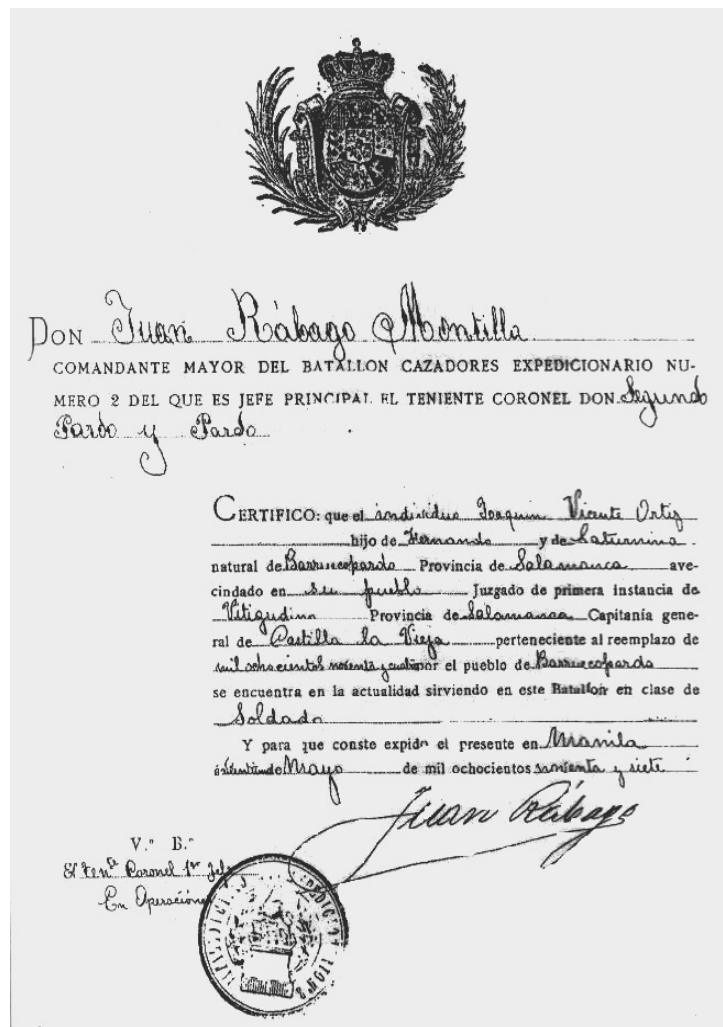 DON Juan Rábago Montilla
COMANDANTE MAYOR DEL BATALLON CAZADORES EXPEDICIONARIO NU-
MERO 2 DEL QUE ES JEFE PRINCIPAL EL TENIENTE CORONEL DON Segundo
Pardo y Pardo
CERTIFICO: que el individuo Joaquin Vicente Ortiz
hijo de Fernando y de Saturnina
natural de Barruecopardo Provincia de Salamanca ave-
cindado en su pueblo Juzgado de primera instancia de
Vitigudino Provincia de Salamanca Capitanía gene-
ral de Castilla la Vieja perteneciente al reemplazo de
mil ochocientos noventa y cuatro por el pueblo de Barruecopardo
se encuentra en la actualidad sirviendo en este Batallon en clase de
Soldado
Y para que conste expido el presente en Manila
de Mayo de mil ochocientos noventa y siete
Juan Rábago
V.º B.º
El Ten.e Coronel 1er Jefe
En Operaciones